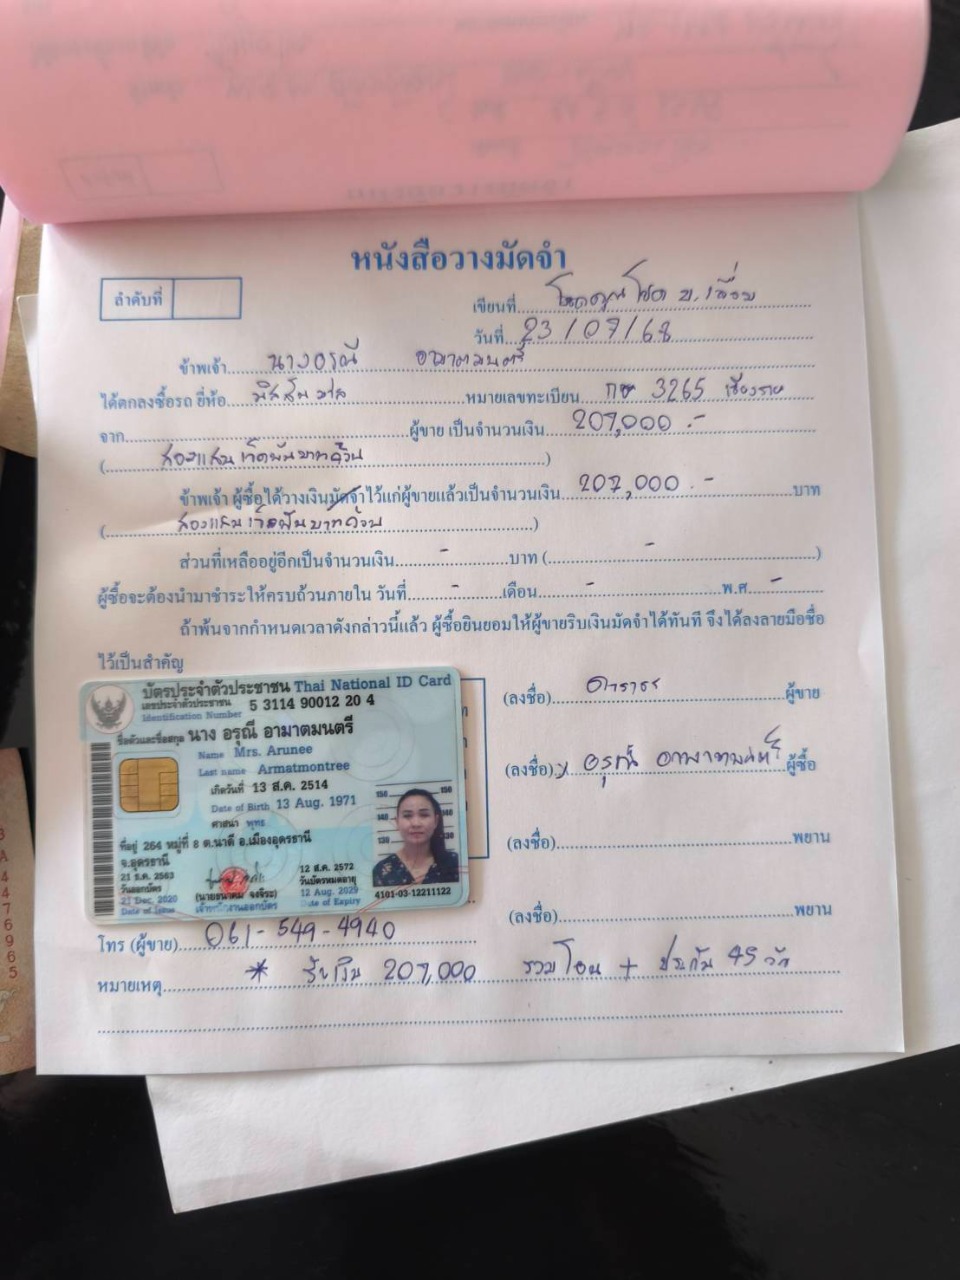 หนังสือวางมัดจำ
ลำดับที่
เขียนที่
วันที่ 23/07/68
ข้าพเจ้า นางอรุณี อามาตมนตรี
ได้ตกลงซื้อรถ ยี่ห้อ หมายเลขทะเบียน 3265 เชียงราย
จาก ผู้ขาย เป็นจำนวนเงิน 207,000.-
(สองแสนเจ็ดพันบาทถ้วน)
ข้าพเจ้า ผู้ซื้อได้วางเงินมัดจำไว้แก่ผู้ขายแล้วเป็นจำนวนเงิน 207,000.- บาท
(สองแสนเจ็ดพันบาทถ้วน)
ส่วนที่เหลืออยู่อีกเป็นจำนวนเงิน - บาท ( - )
ผู้ซื้อจะต้องนำมาชำระให้ครบถ้วนภายใน วันที่ - เดือน - พ.ศ -
ถ้าพ้นจากกำหนดเวลาดังกล่าวนี้แล้ว ผู้ซื้อยินยอมให้ผู้ขายริบเงินมัดจำได้ทันที จึงได้ลงลายมือชื่อ
ไว้เป็นสำคัญ
บัตรประจำตัวประชาชน Thai National ID Card
เลขประจำตัวประชาชน 5 3114 90012 20 4
Identification Number
ชื่อตัวและชื่อสกุล นาง อรุณี อามาตมนตรี
Name Mrs. Arunee
Last name Armatmontree
เกิดวันที่ 13 ส.ค. 2514
Date of Birth 13 Aug. 1971
ศาสนา พุทธ
ที่อยู่ 264 หมู่ที่ 8 ต.นาดี อ.เมืองอุดรธานี
จ.อุดรธานี
21 ธ.ค. 2563
วันออกบัตร
21 Dec. 2020
Date of Issue
เจ้าพนักงานออกบัตร
12 ส.ค. 2572
วันบัตรหมดอายุ
12 Aug. 2029
Date of Expiry
150 150
140 140
130 130
4101-03-12211122
(ลงชื่อ) ผู้ขาย
(ลงชื่อ) x อรุณี อามาตมนตรี ผู้ซื้อ
(ลงชื่อ) พยาน
(ลงชื่อ) พยาน
โทร (ผู้ขาย) 061-549-4940
หมายเหตุ * รับเงิน 207,000 รวมโอน + ประกัน 45 วัน